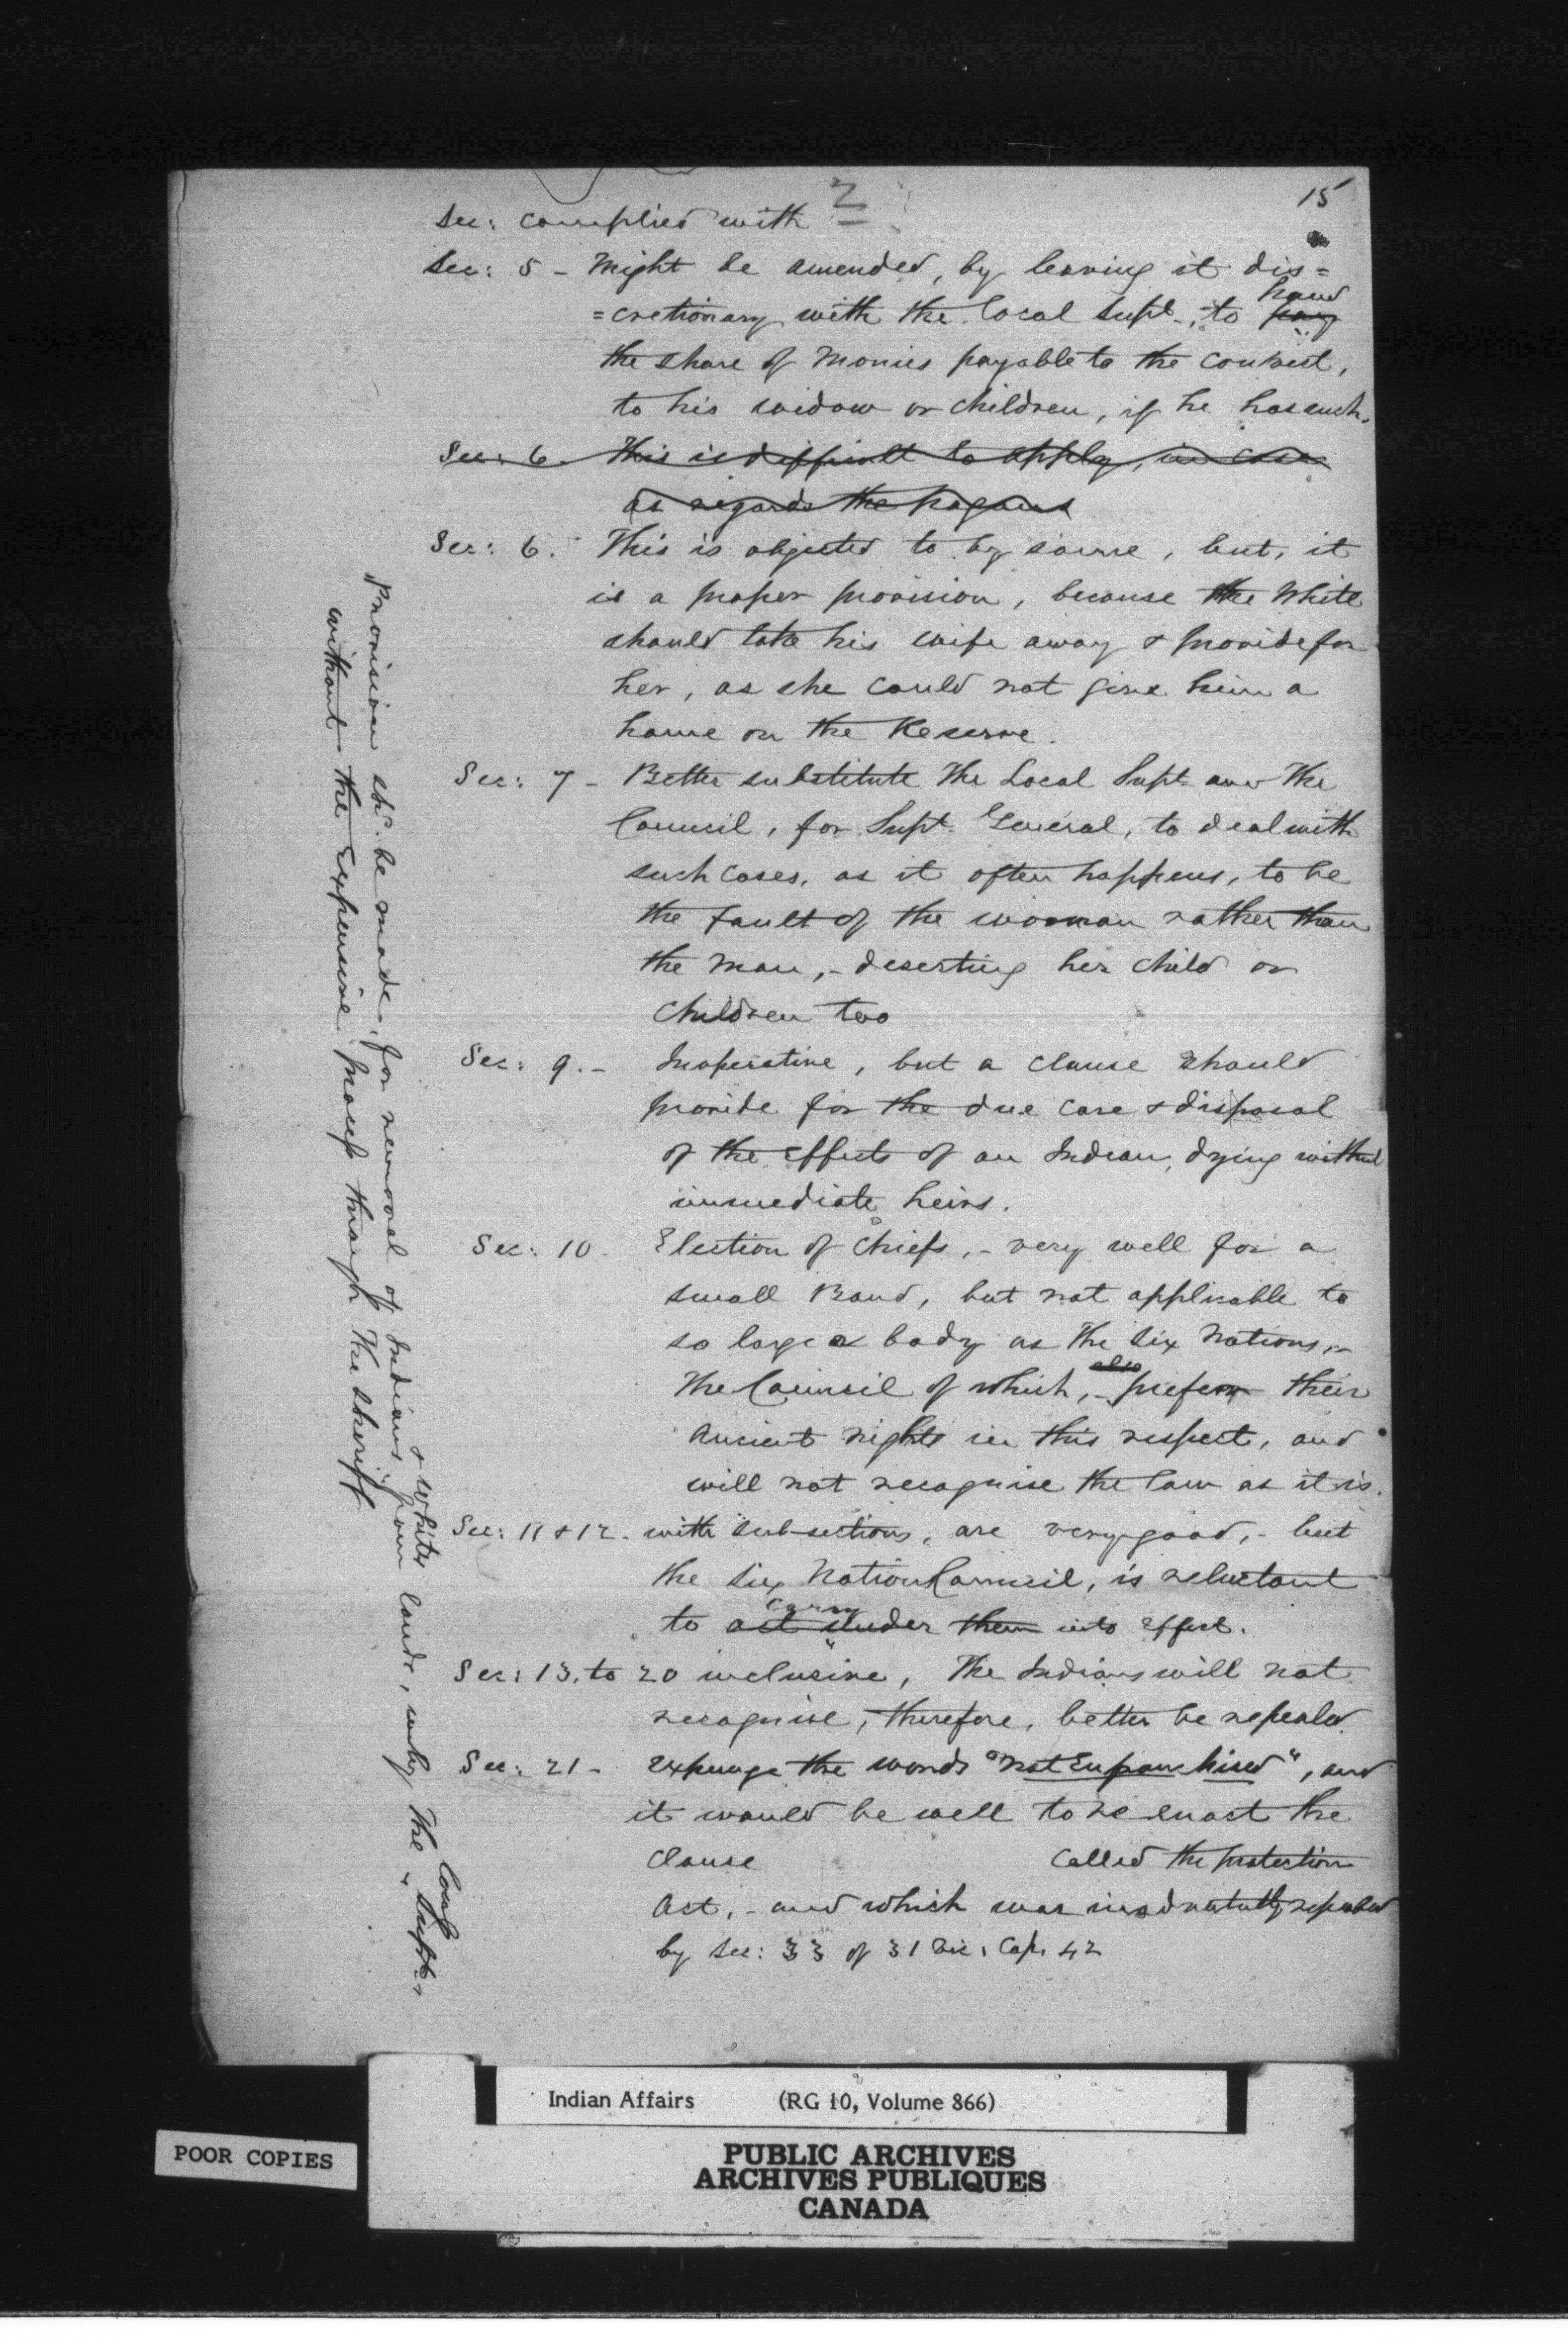 2
15
Sec: complied with
Sec: 5 - Might be amended, by leaving it dis=
=cretionary with the Local Supt., to pay hand
the share of Monies payable to the convict,
to his widow or children, if he has such.
Sec: 6. This is difficult to apply, in case
as regards the pagans
Sec: 6. This is objected to by some, but, it
is a proper provision, because the White
should take his wife away & provide for
her, as she could not give him a
home on the Reserve.
Sec: 7 - Better substitute The Local Supt. and The
Council, for Supt. General, to deal with
such cases, as it often happens, to be
the fault of the woman rather than
the man, - deserting her child or
children too
Sec: 9. - Inoperative, but a clause should
provide for the due care & disposal
of the effects of an Indian, dying without
immediate heirs.
Sec: 10. Election of Chiefs, - very well for a
small Band, but not applicable to
so large a body as The Six Nations, -
The Council of which, - also prefer their
ancient rights in this respect, and
will not recognise the law as it is.
Sec: 11 & 12. with sub-sections, are very good, - but
the Six Nation Council, is reluctant
to act under carry them into effect.
Sec: 13, to 20 inclusive, The Indians will not
recognise, therefore, better be repealed.
Sec: 21 - expunge the words "not Enfranchised", and
it would be well to re enact the
clause called the protection
Act, - and which was inadvertently repealed
by Sec: 33 of 31 Vic, Cap. 42
Provision shd. be made, for removal of Indians & Whites from lands, by The Local Supt.,
without the Expensive process through The Sheriff
Indian Affairs (RG 10, Volume 866)
POOR COPIES
PUBLIC ARCHIVES
ARCHIVES PUBLIQUES
CANADA